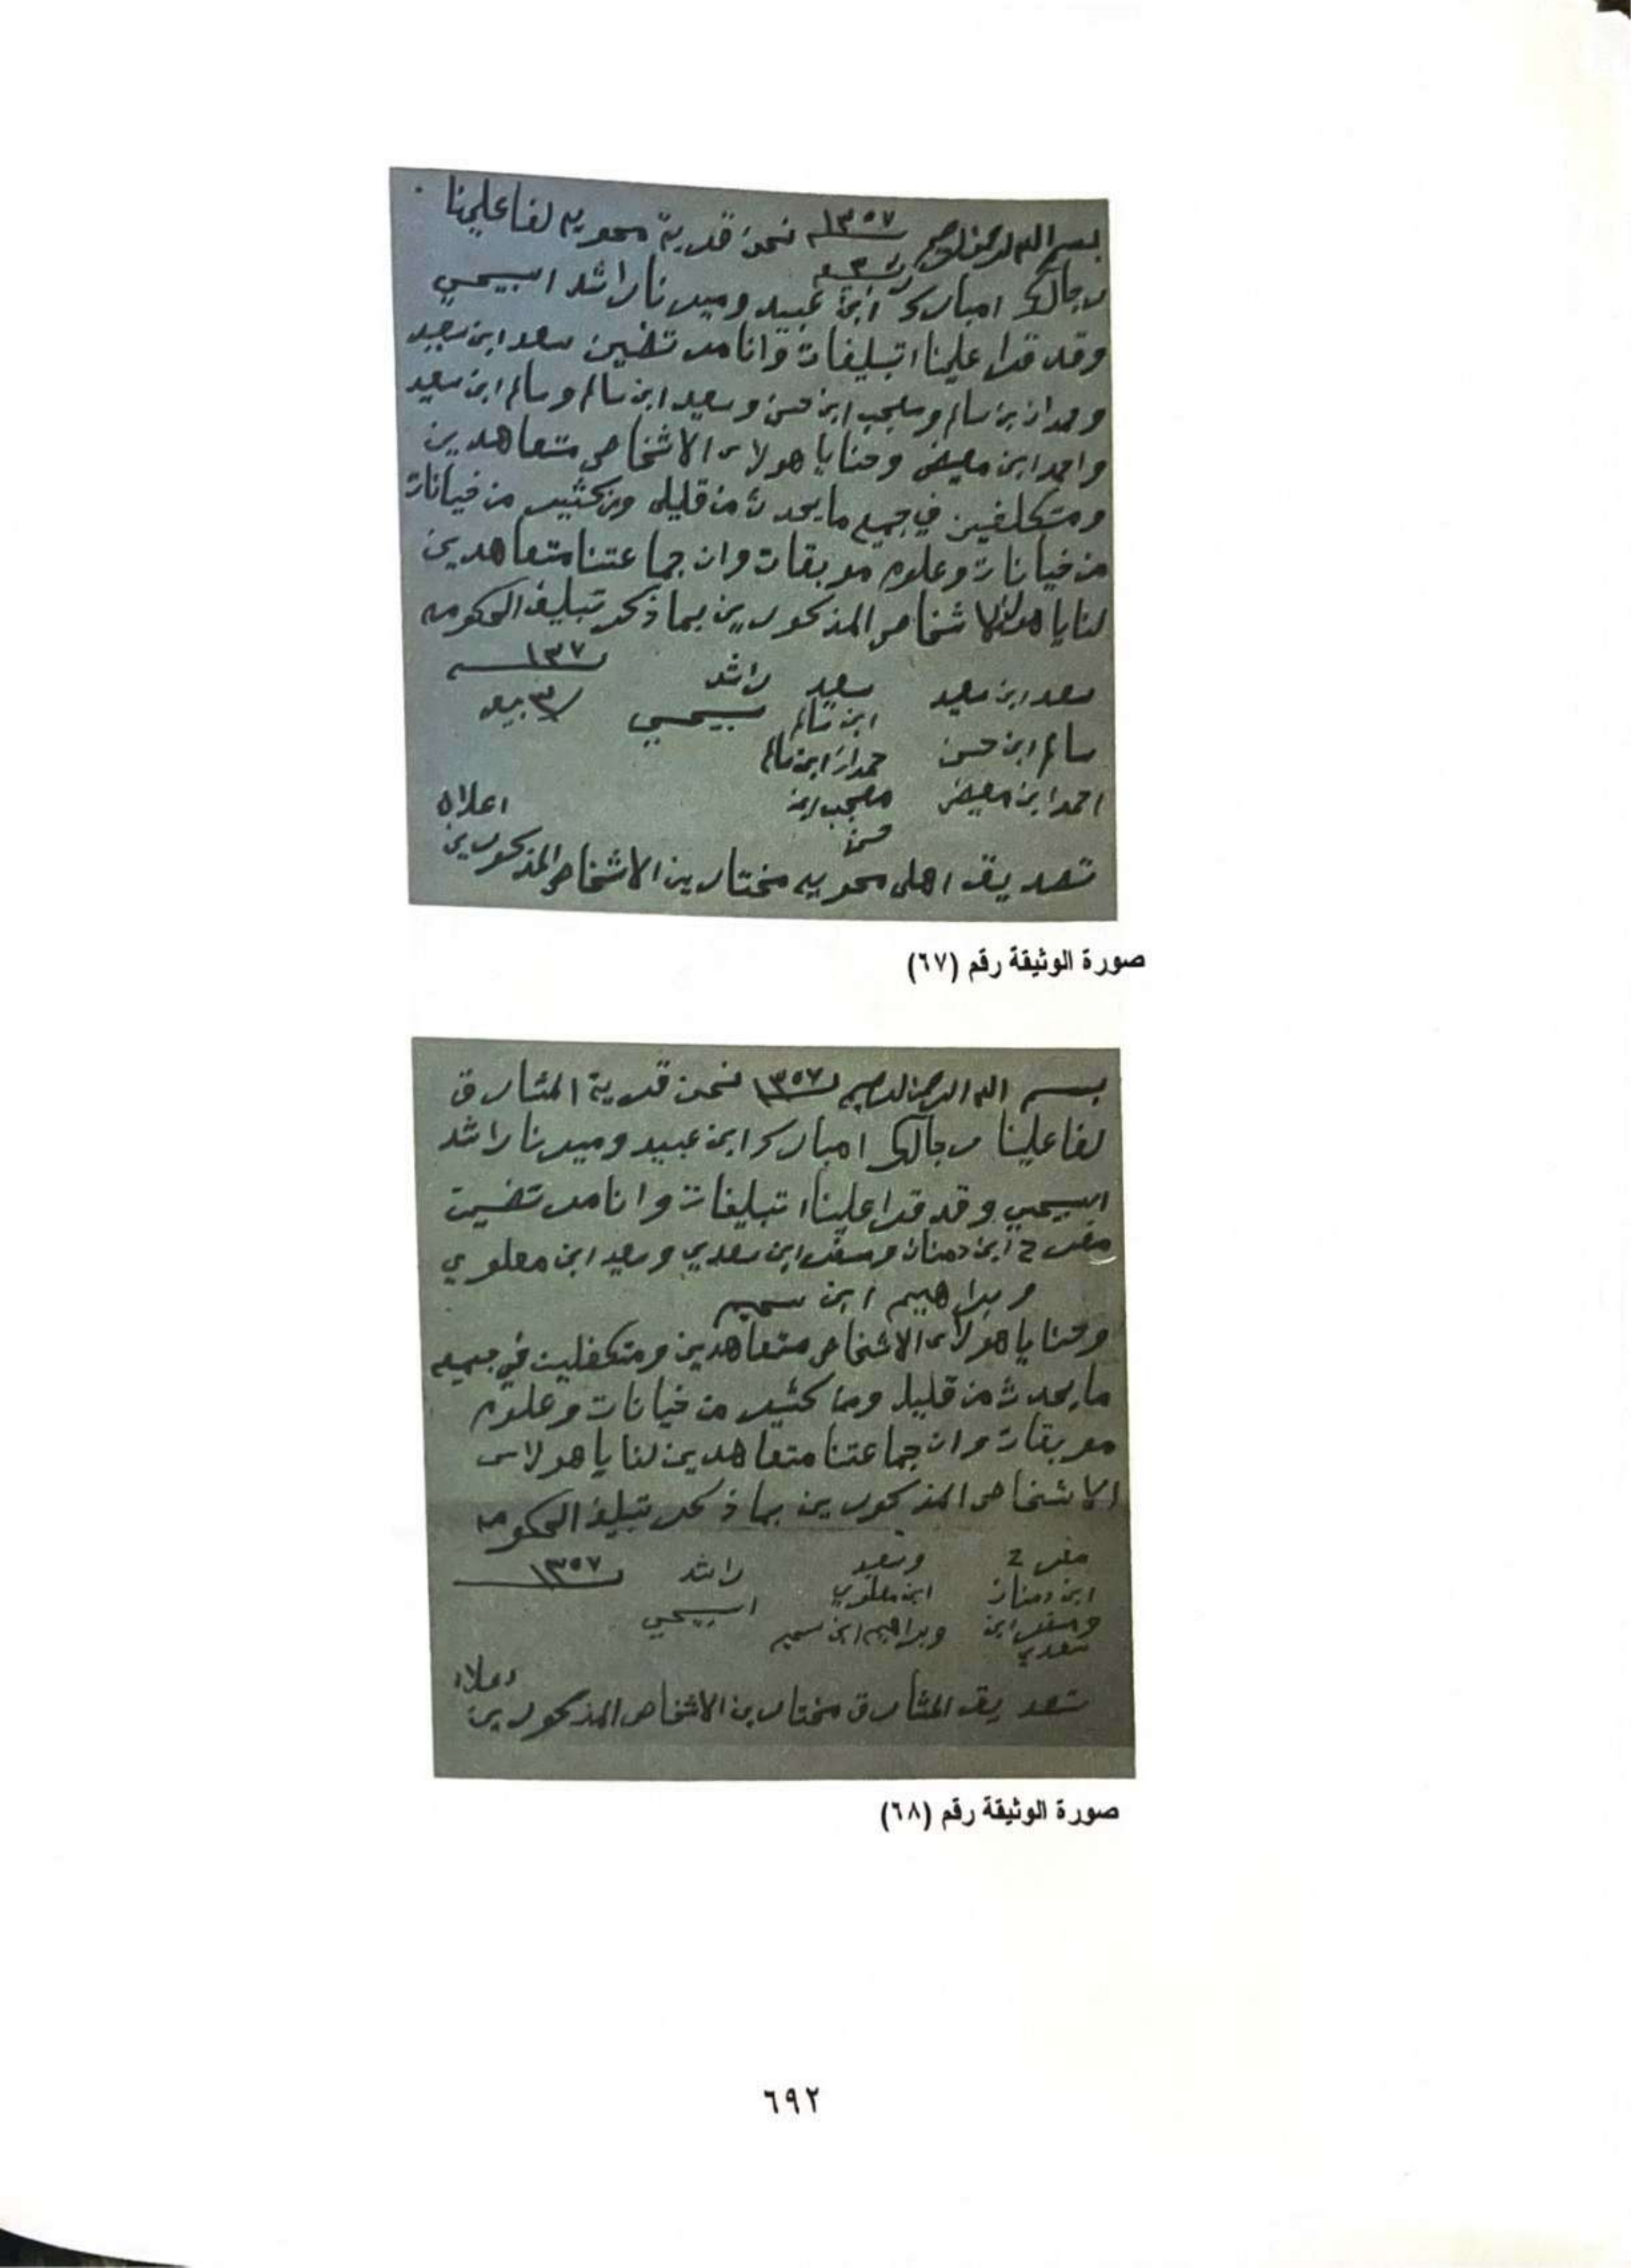 بسم الله الرحمن الرحيم ١٣٥٧ نحن قرية محويه لفا علينا
رجالكم امبارك ابن عبيد وميرنا راشد السيحي
وقد قرا علينا اتبليغات وانا مر تضين سعد ابن سعيد
وحمدان بن سالم ومعجب ابن حسن وسعيد ابن سالم وسالم ابن سعيد
واحمد ابن معيض وحنا يا هولاء الاشخاص متعاهدين
ومتكلفين في جميع ما يحدث من قليل ومن كثير من خيانات
من خيانات وعلوم موبقات وان جماعتنا متعاهدين
لنا يا الاشخاص المذكورين بما ذكر تبليغ الحكومه
١٣٧
سعد ابن سعيد سعيد راشد
ابن سالم
سالم ابن حسن حمدان ابن سالم
احمد ابن معيض معجب ابن اعلاه
حسن
تصديق اهل محويه مختارين الاشخاص المذكورين
صورة الوثيقة رقم (٦٧)
بسم الله الرحمن الرحيم ١٣٥٧ نحن قرية المشارق
لفا علينا رجالكم امبارك ابن عبيد وميرنا راشد
السيحي وقد قرا علينا اتبليغات وانا مر تضين
مفرح ابن دمنان ومسفر ابن سعدي وسعيد ابن معلوي
وبراهيم ابن سحيم
وحنا يا هولاء الاشخاص متعاهدين ومتكفلين في جميع
ما يحدث من قليل ومن كثير من خيانات وعلوم
موبقات وان جماعتنا متعاهدين لنا يا هولاء
الاشخاص المذكورين بما ذكر تبليغ الحكومه
مفرح وسعيد راشد ١٣٥٧
ابن دمنان ابن معلوي
ومسفر ابن وبراهيم ابن سحيم
سعدي
اعلاه
تصديق المشارق مختارين الاشخاص المذكورين
صورة الوثيقة رقم (٦٨)
٦٩٢